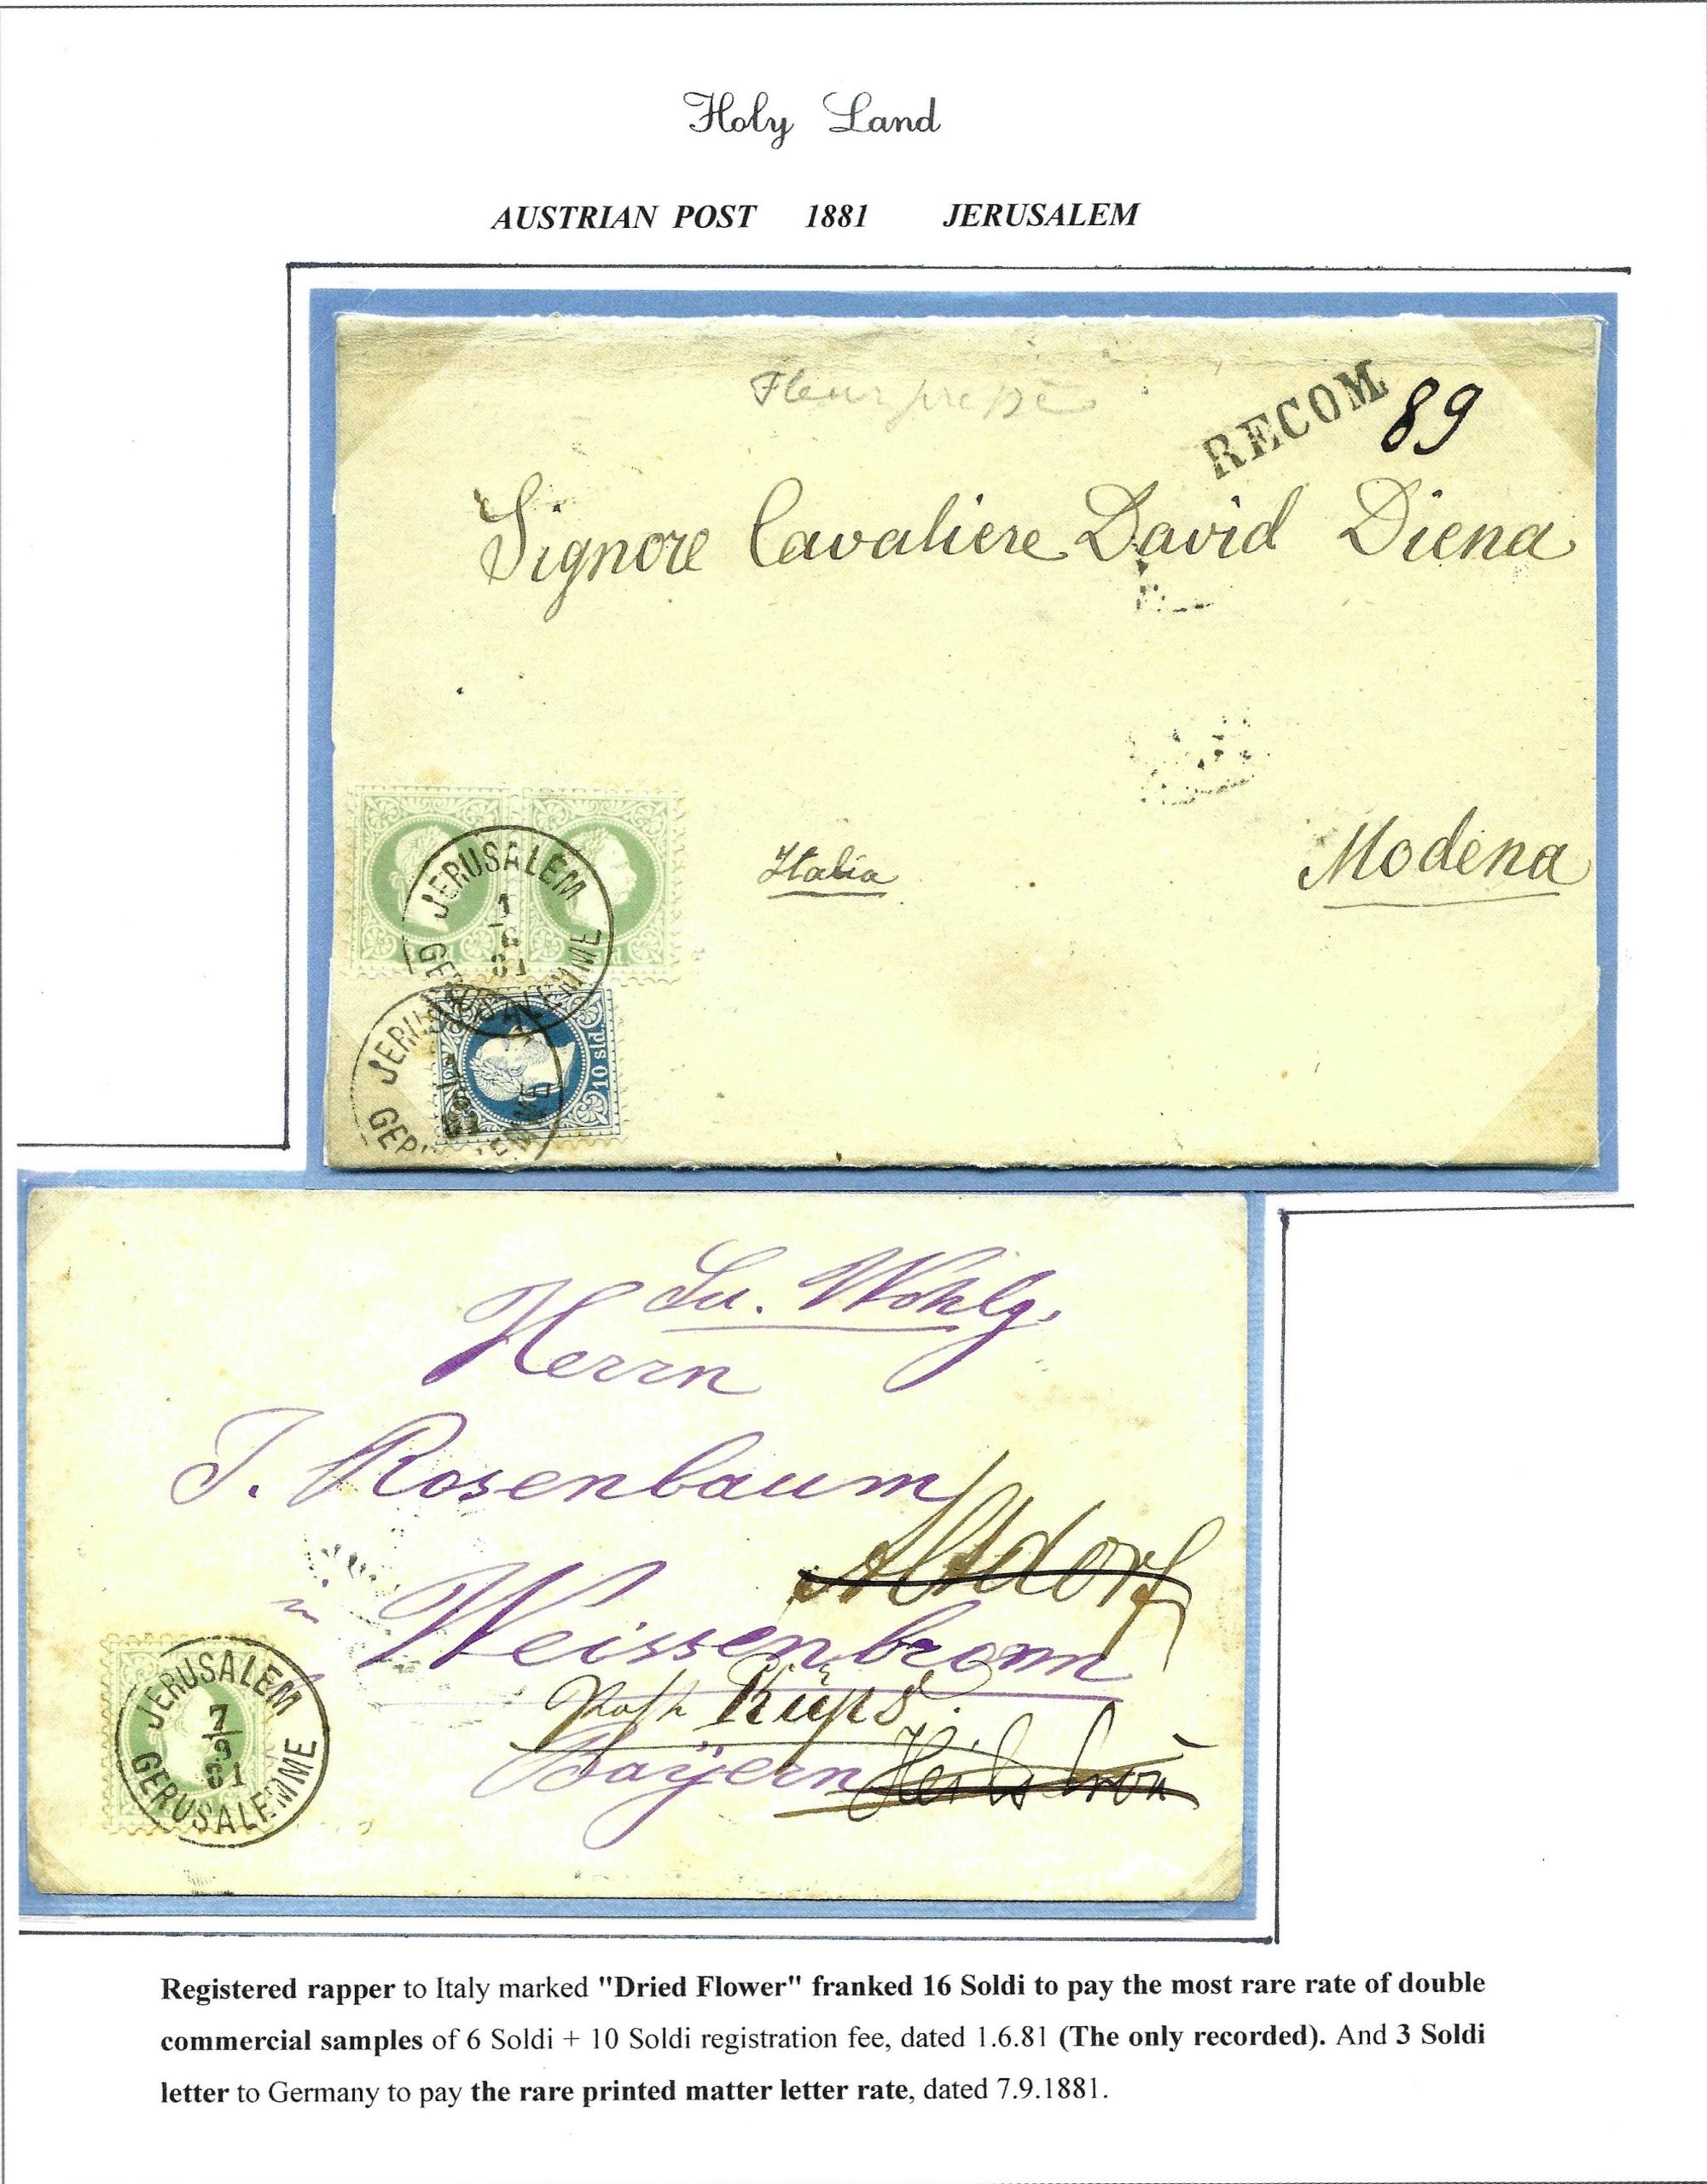 Holy Land
AUSTRIAN POST 1881 JERUSALEM
Fleur
RECOM 89
Signore Cavaliere David Diena
Italia
Modena
JERUSALEM
1
6
81
GERUSALEMME
10 sld.
Sr. Wohlg.
Herrn
J. Rosenbaum
Altdorf
in Weissenbronn
Post Küps
Bayern Heilsbron
JERUSALEM
7/9
81
GERUSALEMME
Registered rapper to Italy marked "Dried Flower" franked 16 Soldi to pay the most rare rate of double
commercial samples of 6 Soldi + 10 Soldi registration fee, dated 1.6.81 (The only recorded). And 3 Soldi
letter to Germany to pay the rare printed matter letter rate, dated 7.9.1881.